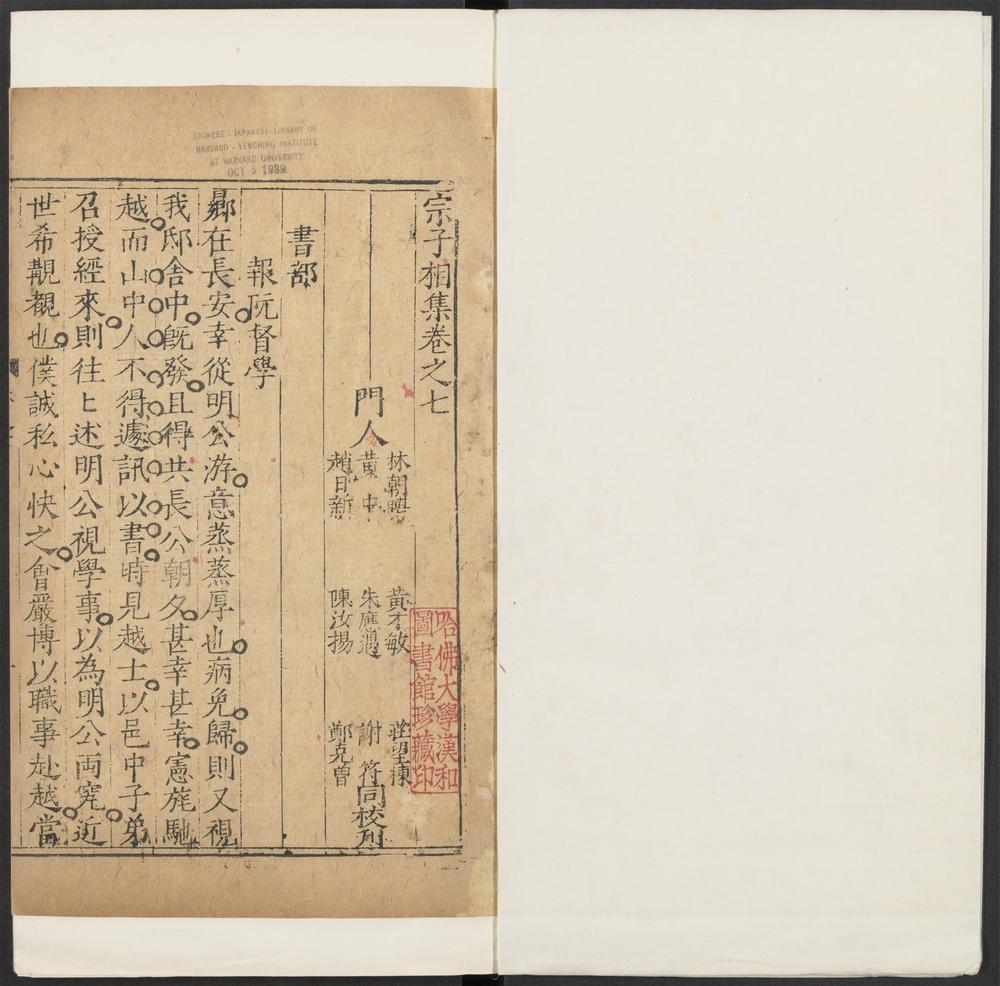 CHINESE - JAPANESE LIBRARY OF
HARVARD - YENCHING INSTITUTE
AT HARVARD UNIVERSITY
OCT 5 1939
宗子相集卷之七
哈佛大學漢和
圖書館珍藏印
門人
林朝
黃才敏
莊望棟
黃中
朱應
謝符同校刋
趙日新
陳汝揚
鄭克曾
書部
報阮督學
曏在長安幸從明公游意蒸蒸厚也病免歸則又視
我邸舍中旣發且得共長公朝夕甚幸甚幸憲旄馳
越而山中人不得遽訊以書時見越士以邑中子弟
召授經來則往上述明公視學事以為明公両䆒近
世希覯覩也僕誠私心快之會嚴博以職事赴越當